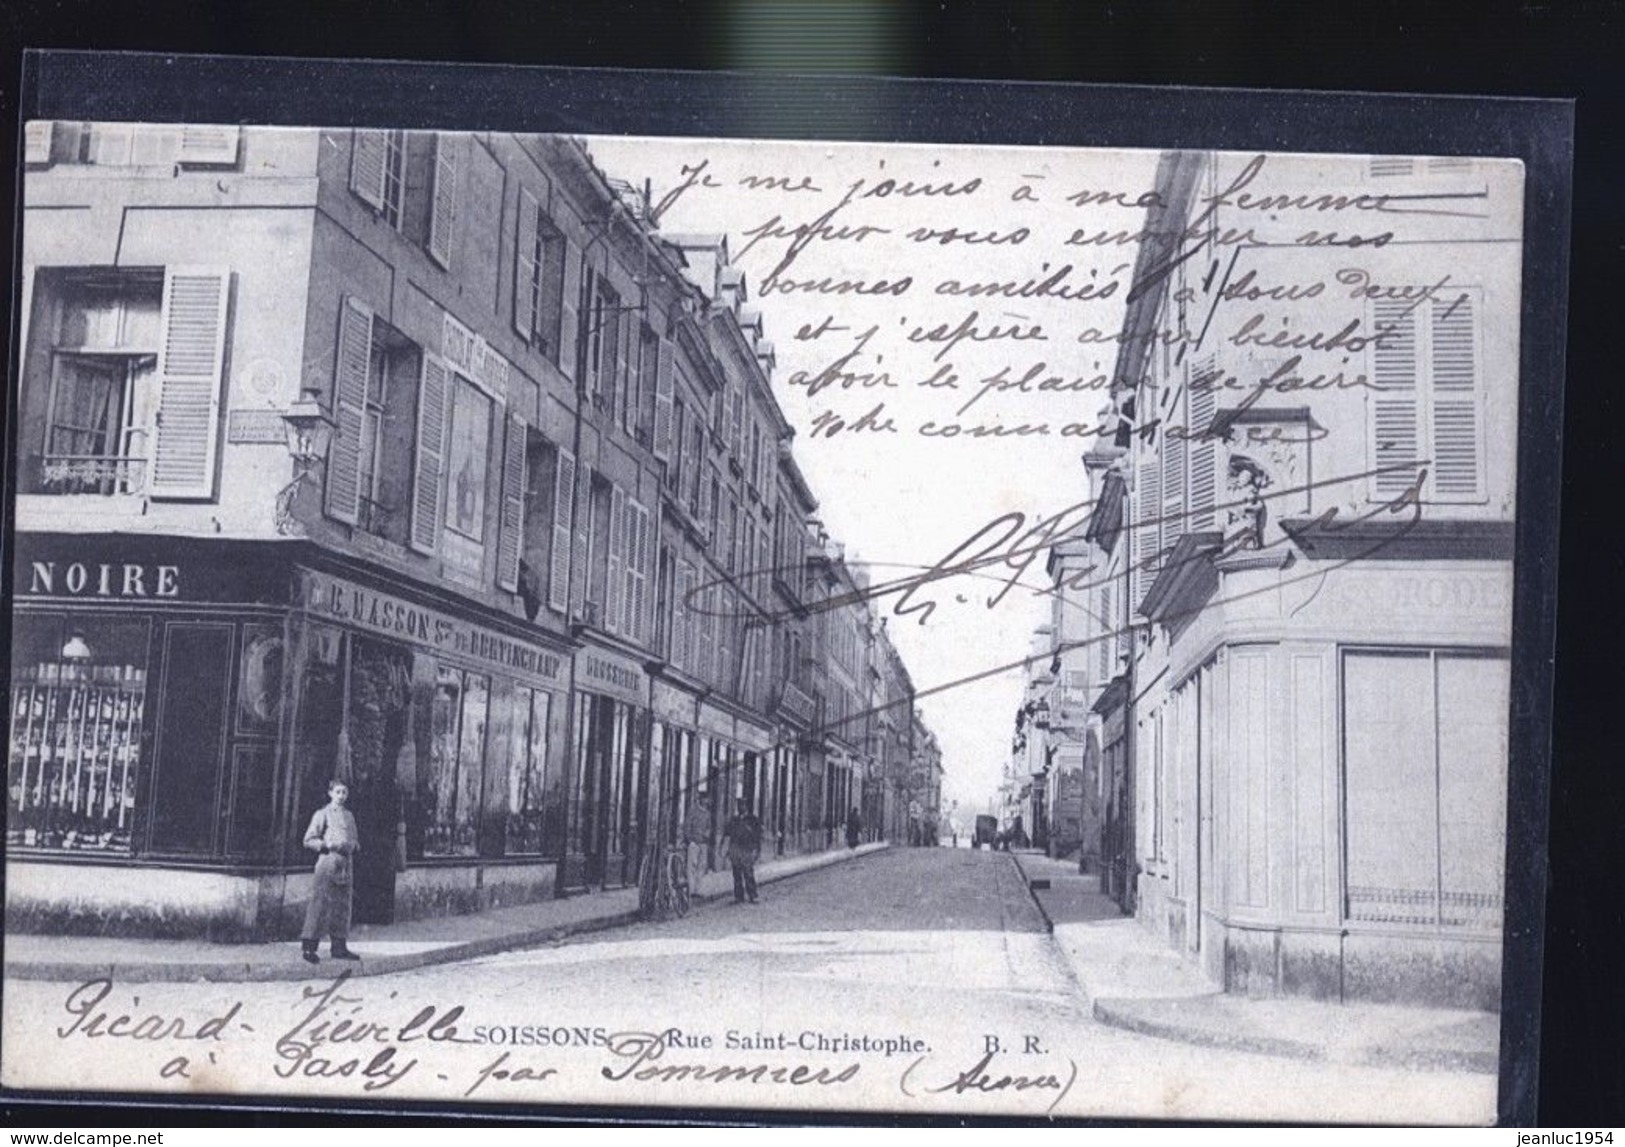 Je me joins à ma femme
pour vous envoyer nos
bonnes amitiés à tous deux,
et j'espère avoir bientôt
avoir le plaisir de faire
votre connaissance
G. Picard
NOIRE
H. MASSON Sr DE BERTINCHAMP
BROSSERIE
MODE
Picard-Viéville
SOISSONS. — Rue Saint-Christophe. B. R.
à Pasly - par Pommiers (Aisne)
jeanluc1954